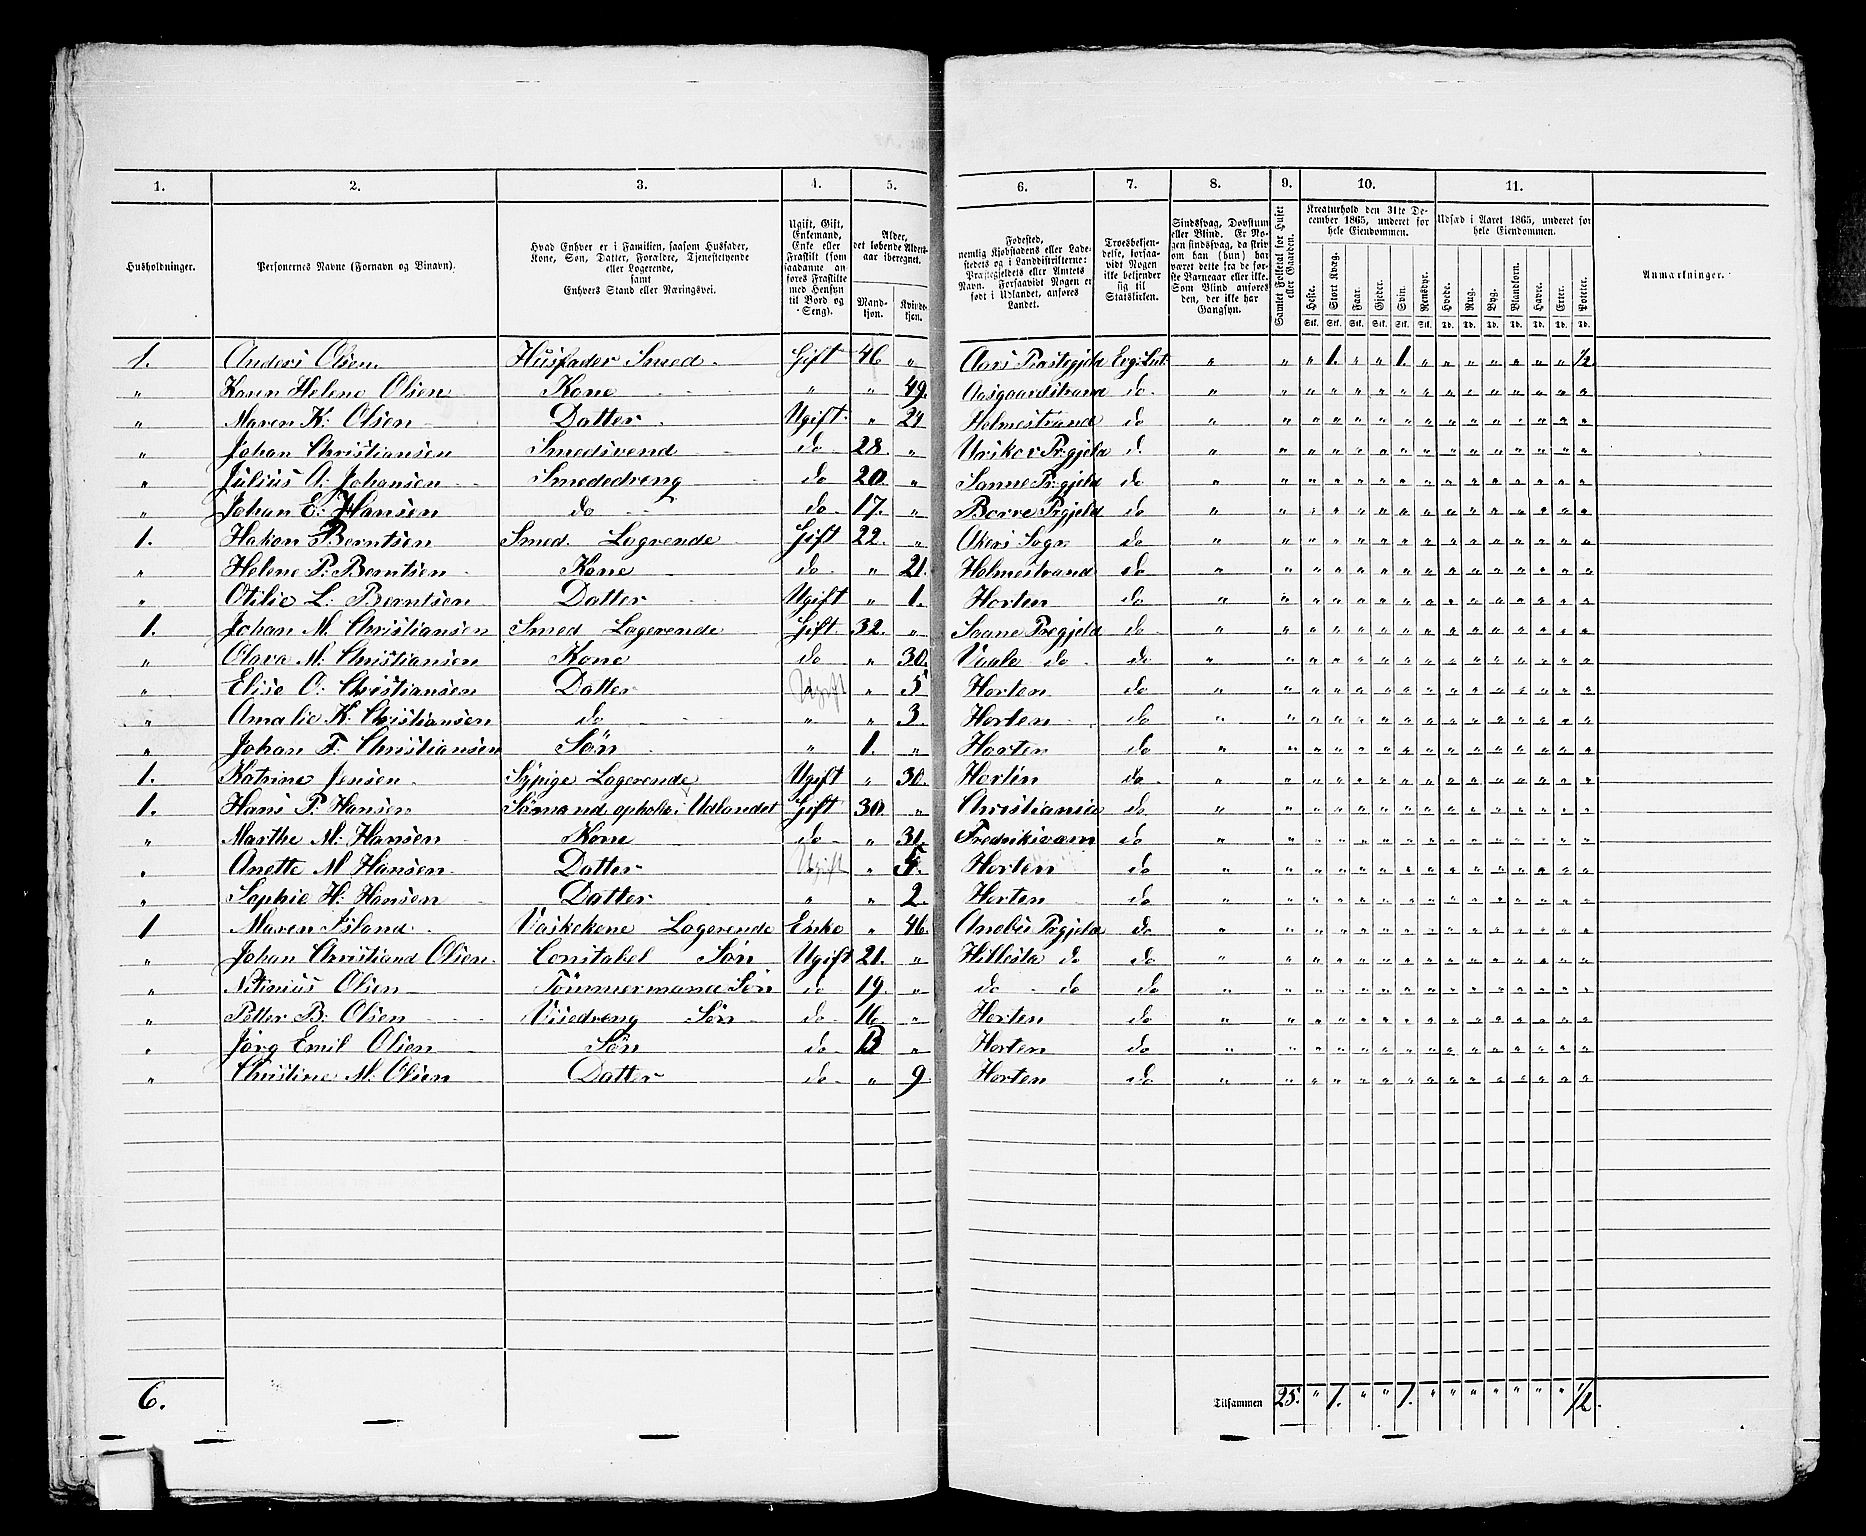 1. 2. 3. 4. 5. 6. 7. 8. 9. 10. 11.
Husholdninger. | Personernes Navne (Fornavn og Binavn). | Hvad Enhver er i Familien, saasom Husfader, Kone, Søn, Datter, Forældre, Tjenestetyende eller Logerende, samt Enhvers Stand eller Næringsvei. | Ugift, Gift, Enkemand, Enke eller Fraskilt (som saadanne anføres Fraskilte med Hensyn til Bord og Seng). | Alder, det løbende Alders-aar iberegnet. Mand-kjøn. Kvinde-kjøn. | Fødested, nemlig Kjøbstadens eller Ladestedets og i Landdistrikterne: Præstegjeldets eller Amtets Navn. Forsaavidt Nogen er født i Udlandet, anføres Landet. | Troesbekjendelse, forsaavidt Nogen ikke bekjender sig til Statskirken. | Sindssvag, Døvstum eller Blind. Er Nogen sindssvag, da skrives om han (hun) har været dette fra de første Barneaar eller ikke. Som Blind anføres den, der ikke har Gangsyn. | Samlet Folketal for Huset eller Gaarden. | Kreaturhold den 31te December 1865, underet for hele Eiendommen. Heste. Stort Kvæg. Faar. Gjeder. Svin. Rensdyr. | Udsæd i Aaret 1865, underet for hele Eiendommen. Hvede. Rug. Byg. Blandkorn. Havre. Erter. Poteter. | Anmærkninger.
Stk. Stk. Stk. Stk. Stk. Stk. Td. Td. Td. Td. Td. Td. Td.
1. Anders Olsen. Husfader Smed. Gift 46 " Aars Præstegjeld Evg: Lut. " " " 1. " " 1. " " " " " " " 1/2
" Karen Helene Olsen Kone " " 49. Aasgaardstrand do " " " " " " " " " " " " " " "
" Maren K: Olsen Datter Ugift. " 24 Holmestrand do " " " " " " " " " " " " " " "
" Johan Christiansen Smedsvend do 28. " Urskov Prgjeld d. " " " " " " " " " " " " " " "
" Julius A: Johansen Smededreng do 20. " Sanne Prgjeld do " " " " " " " " " " " " " " "
" Johan E: Hansen do do 17. " Borre Prgjeld do " " " " " " " " " " " " " " "
1. Hakon Berntsen Smed. Logrende Gift 22. " Akers Sogn do " " " " " " " " " " " " " " "
" Helene P: Berntsen Kone do " 21. Holmestrand do " " " " " " " " " " " " " " "
" Otilie L. Berntsen Datter Ugift " 1. Horten do " " " " " " " " " " " " " " "
1. Johan M. Christiansen Smed Logerende Gift. 32. " Saane Pregjeld do " " " " " " " " " " " " " " "
" Olava M. Christiansen Kone do " 30. Vaale do do " " " " " " " " " " " " " " "
" Elise O: Christiansen Datter Ugift " 5 Horten do " " " " " " " " " " " " " " "
" Amalie K. Christiansen do " " 3. Horten do " " " " " " " " " " " " " " "
" Johan F. Christiansen Søn " 1. " Horten do " " " " " " " " " " " " " " "
1. Katrine Jensen. Sypige Logerende Ugift " 30. Horten do " " " " " " " " " " " " " " "
1. Hans P: Hansen Sømand opholdr i Udlandet Gift 30. " Christiania do " " " " " " " " " " " " " " "
" Marthe M: Hansen Kone do " 31. Fredriksværn do " " " " " " " " " " " " " " "
" Anette M Hansen. Datter Ugift " 5. Horten do " " " " " " " " " " " " " " "
" Sophie H: Hansen Datter " " 2. Horten do " " " " " " " " " " " " " " "
1 Maren Island Vaskekone Logerende Enke " 46. Anebu Prgjeld do " " " " " " " " " " " " " " "
" Johan Christiand Olsen. Constabel Søn Ugift 21. " Hillesta do do " " " " " " " " " " " " " " "
" Nitinius Olsen Tømmermand Søn do 19. " do do do " " " " " " " " " " " " " " "
" Petter B: Olsen Visedreng Søn do 16. " Horten do " " " " " " " " " " " " " " "
" Jørg Emil Olsen Søn do 13 " Horten do " " " " " " " " " " " " " " "
" Christine M: Olsen Datter do " 9. Horten do " " " " " " " " " " " " " " "
6. Tilsammen 25. " 1. " " 1. " " " " " " " 1/2.